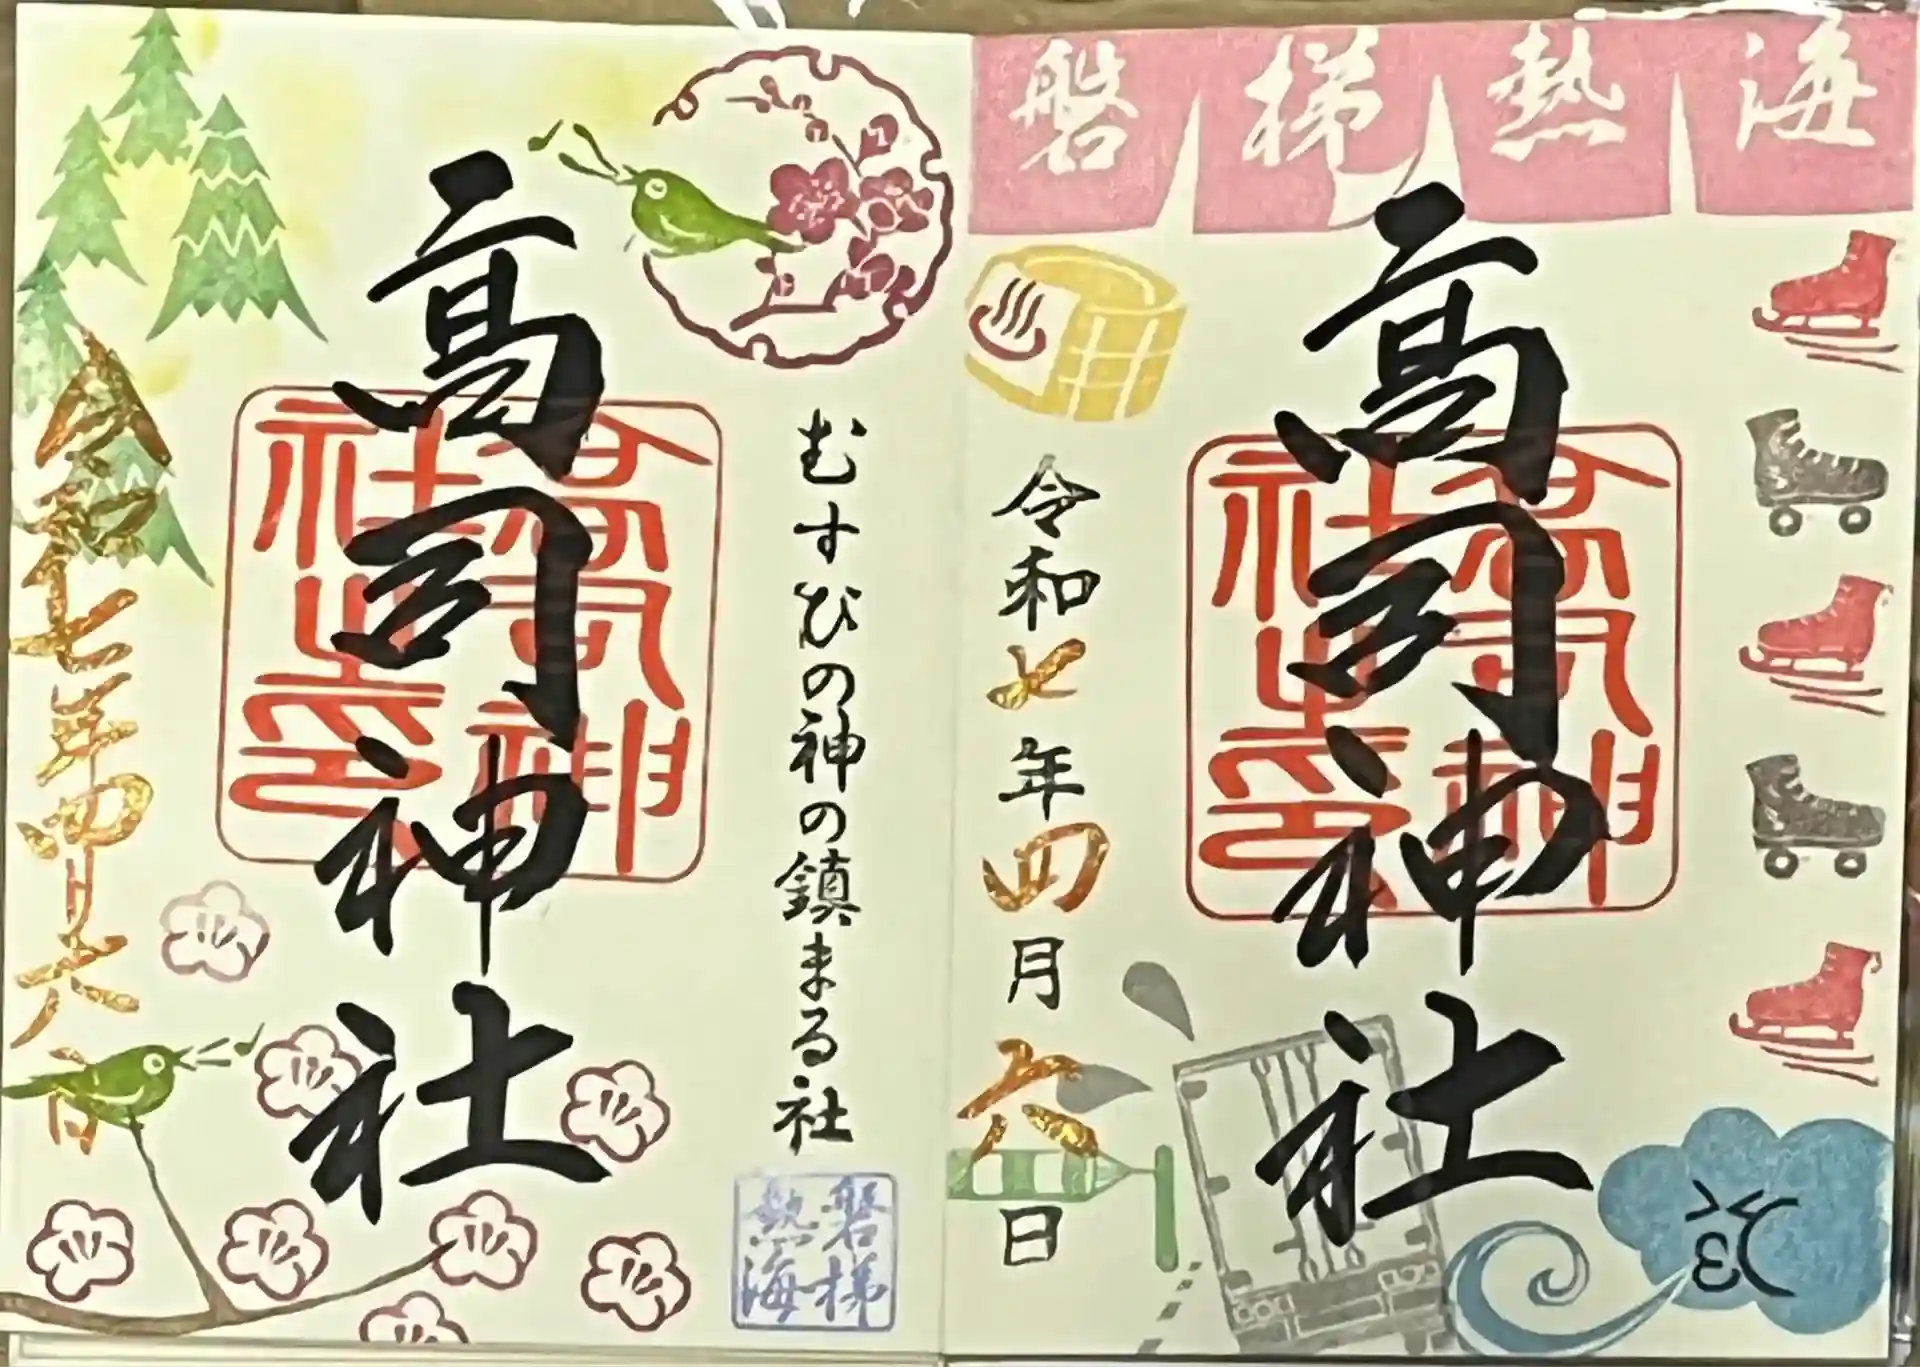 磐梯熱海
高司神社
高司神社之印
令和七年四月六日
♨
むすびの神の鎮まる社
磐梯
熱海
高司神社
高司神社之印
令和七年四月六日